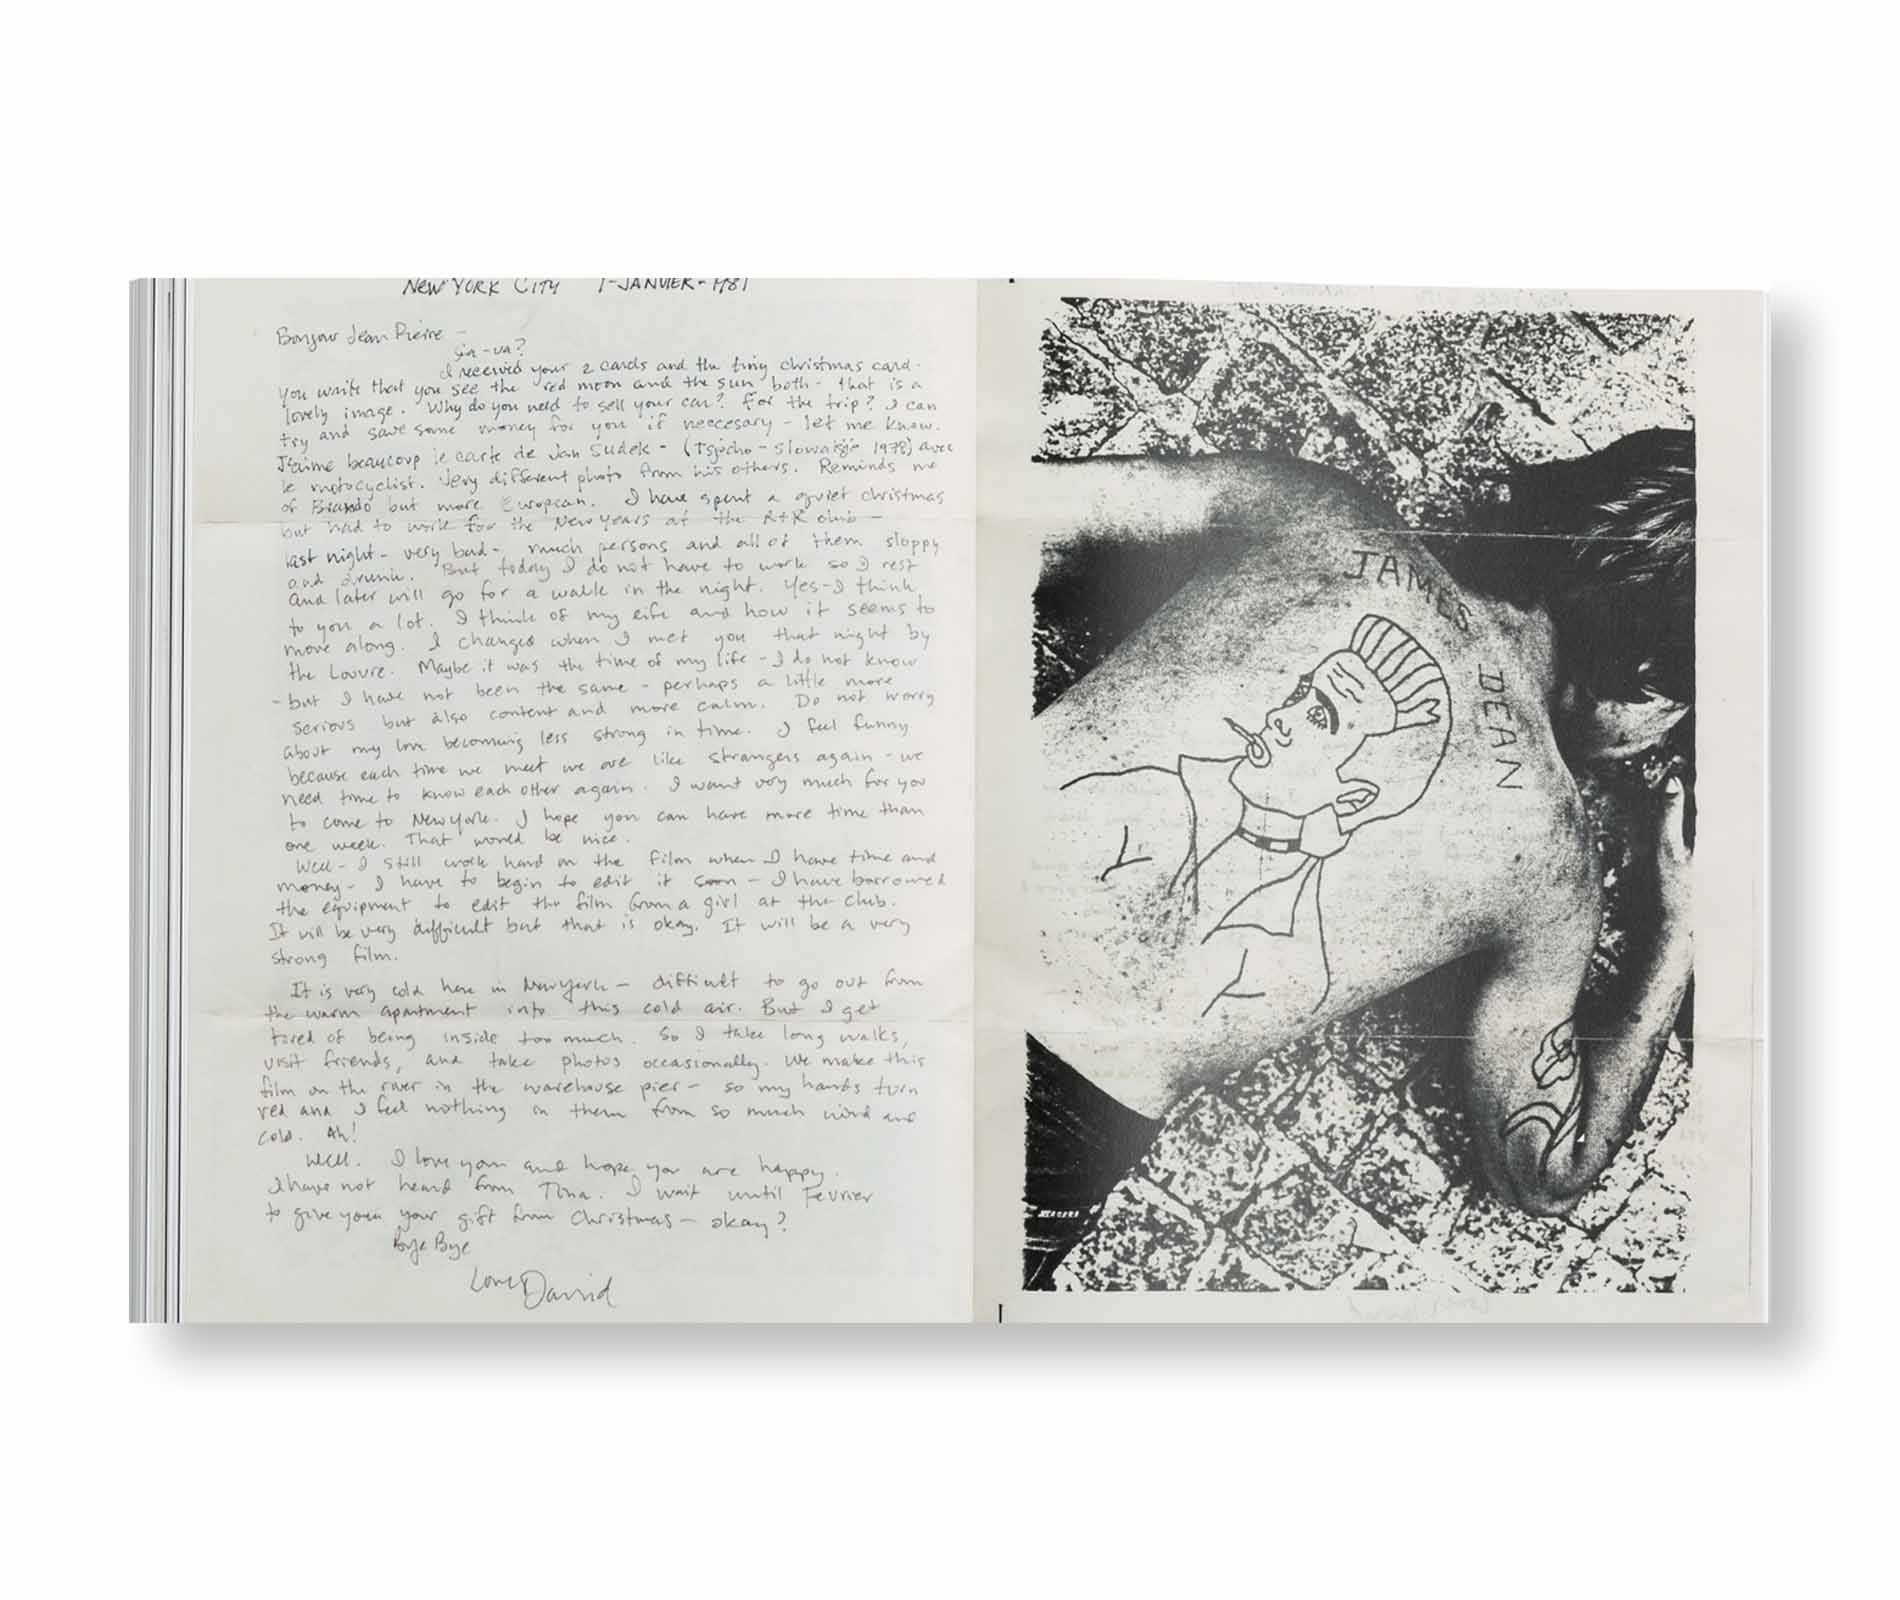 NEW YORK CITY 1-JANVIER-1981
Bonjour Jean Pierre -
Ça-va?
I received your 2 cards and the tiny christmas card.
You write that you see the red moon and the sun both - that is a
lovely image. Why do you need to sell your car? For the trip? I can
try and save some money for you if neccesary - let me know.
J'aime beaucoup le carte de Jan Sudek - (Tsjecho - Slowakije 1978) avec
le motocyclist. Very different photo from his others. Reminds me
of Brando but more European. I have spent a quiet christmas
but had to work for the New Years at the R+R club -
last night - very bad - much persons and all of them sloppy
and drunk. But today I do not have to work so I rest
and later will go for a walk in the night. Yes - I think
to you a lot. I think of my life and how it seems to
move along. I changed when I met you that night by
the Louvre. Maybe it was the time of my life - I do not know
- but I have not been the same - perhaps a little more
serious but also content and more calm. Do not worry
about my love becoming less strong in time. I feel funny
because each time we meet we are like strangers again - we
need time to know each other again. I want very much for you
to come to New York. I hope you can have more time than
one week. That would be nice.
Well - I still work hard on the film when I have time and
money - I have to begin to edit it soon - I have borrowed
the equipment to edit the film from a girl at the club.
It will be very difficult but that is okay. It will be a very
strong film.
It is very cold here in New York - difficult to go out from
the warm apartment into this cold air. But I get
tired of being inside too much. So I take long walks,
visit friends, and take photos occasionally. We make this
film on the river in the warehouse pier - so my hands turn
red and I feel nothing in them from so much wind and
cold. Ah!
Well. I love you and hope you are happy.
I have not heard from Tina. I wait until Fevrier
to give you your gift from Christmas - okay?
Bye Bye
Love David
JAMES
DEAN